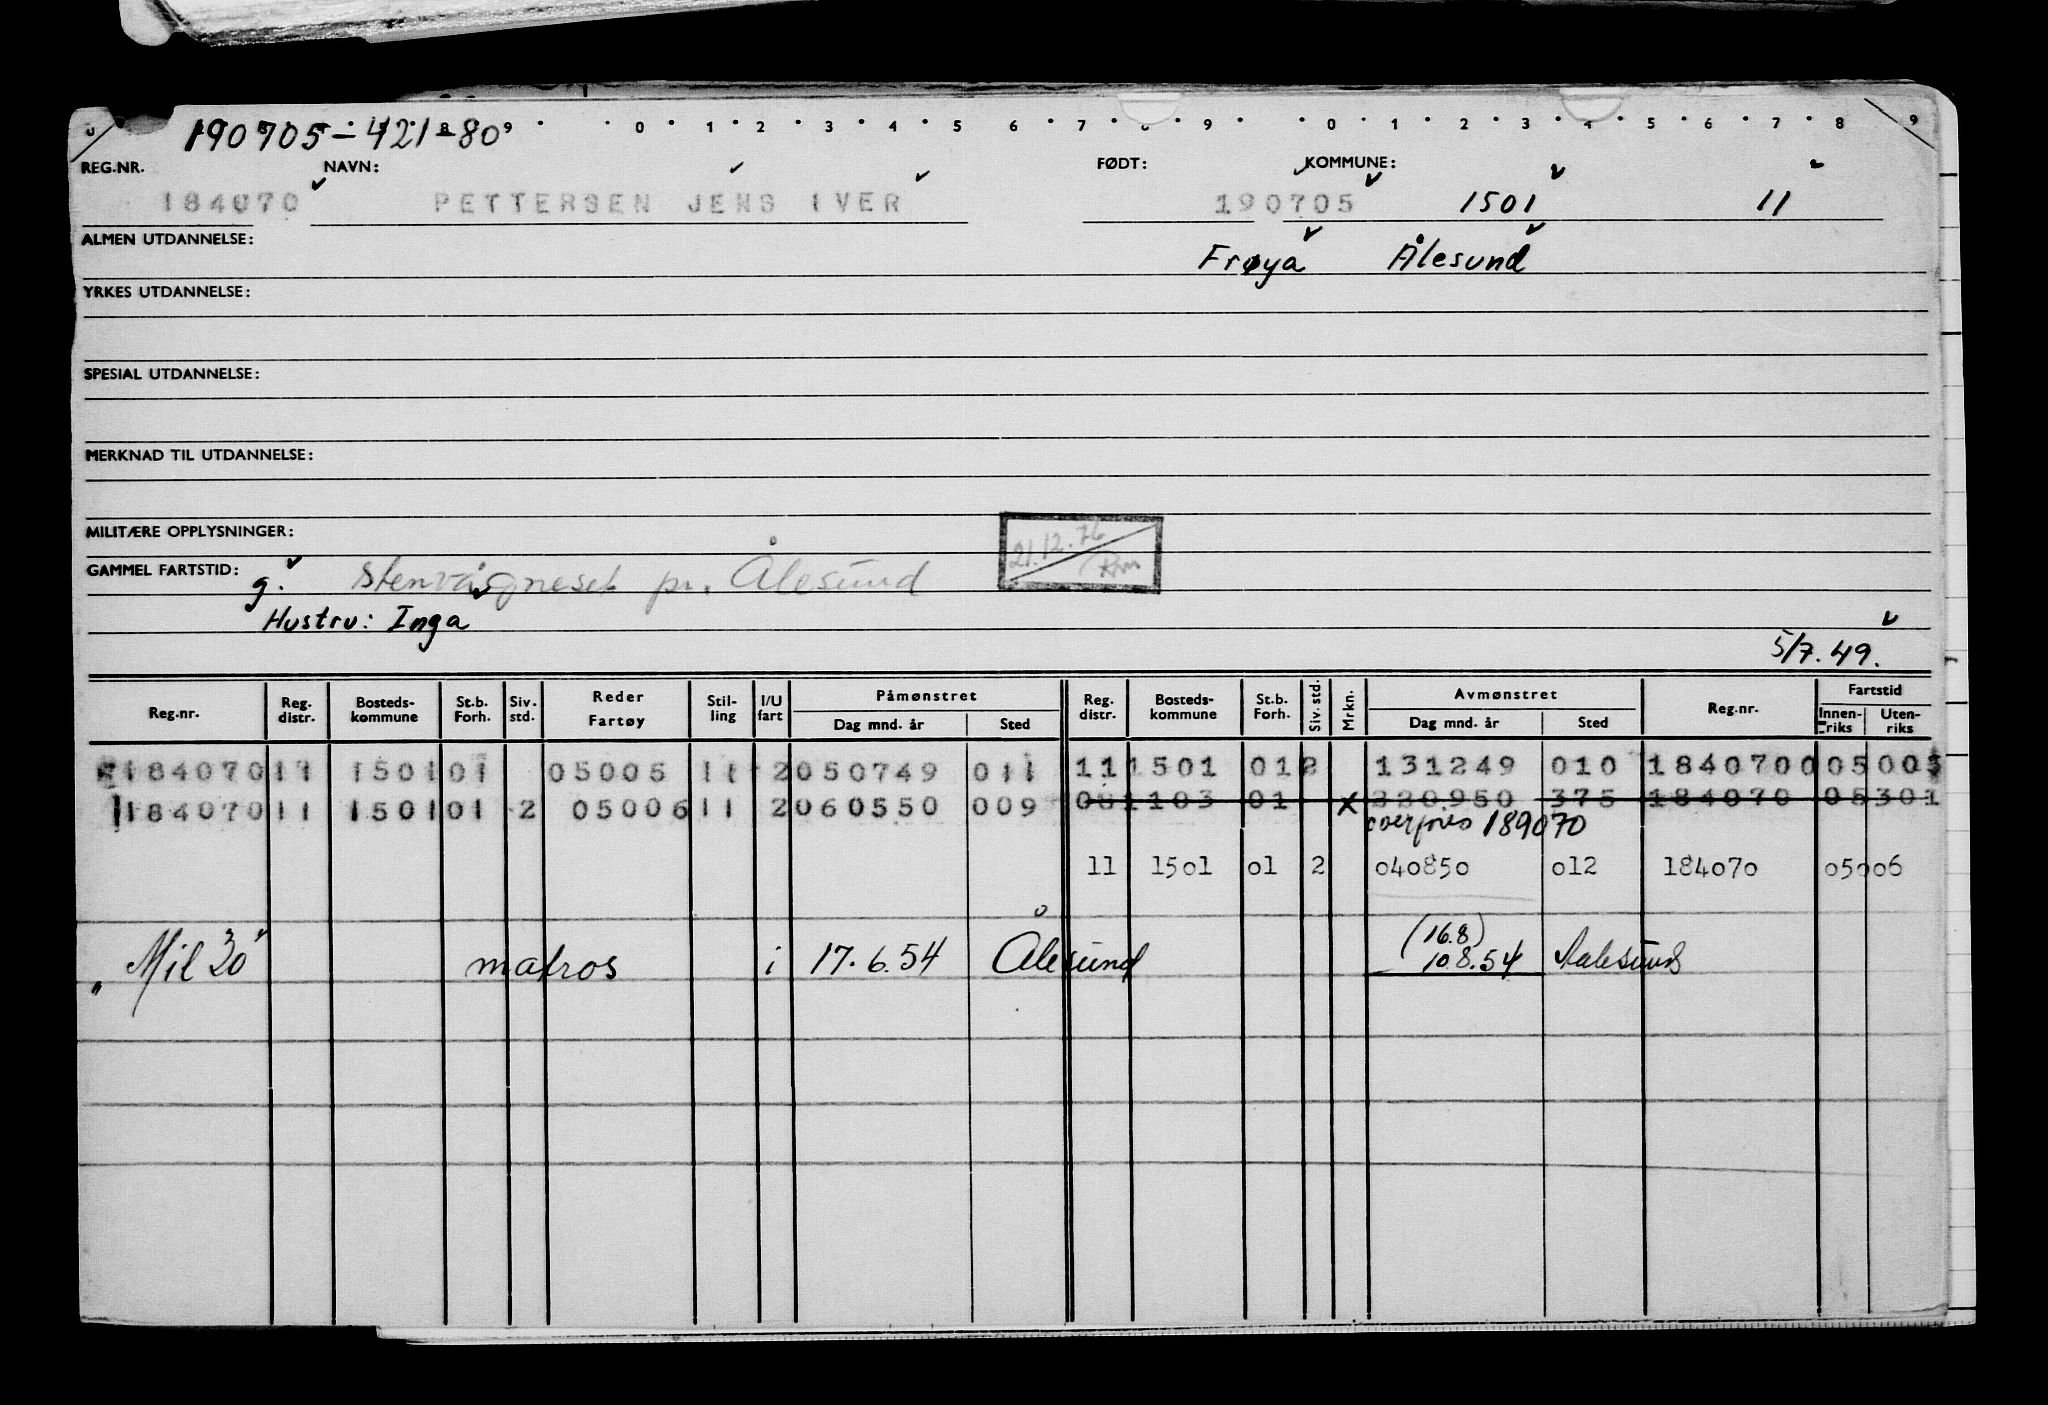 0 190705-421-80 9 0 1 2 3 4 5 6 7 8 9 0 1 2 3 4 5 6 7 8 9
REG.NR. NAVN: FØDT: KOMMUNE:
184070 PETTERSEN JENS IVER 190705 1501 11
ALMEN UTDANNELSE: Frøya Ålesund
YRKES UTDANNELSE:
SPESIAL UTDANNELSE:
MERKNAD TIL UTDANNELSE:
MILITÆRE OPPLYSNINGER:
21.12.76
GAMMEL FARTSTID: g. Stenvågneset pr. Ålesund
Hustru: Inga
5/7.49.
Reg.nr. Reg. distr. Bosteds-kommune St.b. Forh. Siv. std. Reder Fartøy Stil-ling I/U fart Påmønstret Dag mnd. år Sted Reg. distr. Bosteds-kommune St.b. Forh. Siv. std. Mrkn. Avmønstret Dag mnd. år Sted Reg.nr. Fartstid Innen-riks Uten-riks
184070 11 1501 01 05005 11 2 050749 011 11 1501 01 2 131249 010 184070 0 05005
184070 11 1501 01 2 05006 11 2 060550 009 081103 01 X 220950 375 184070 05301
overføres 189070
11 1501 01 2 040850 012 184070 05006
"Mil 30" matros i 17.6.54 Ålesund (16.8) 10.8.54 Aalesund